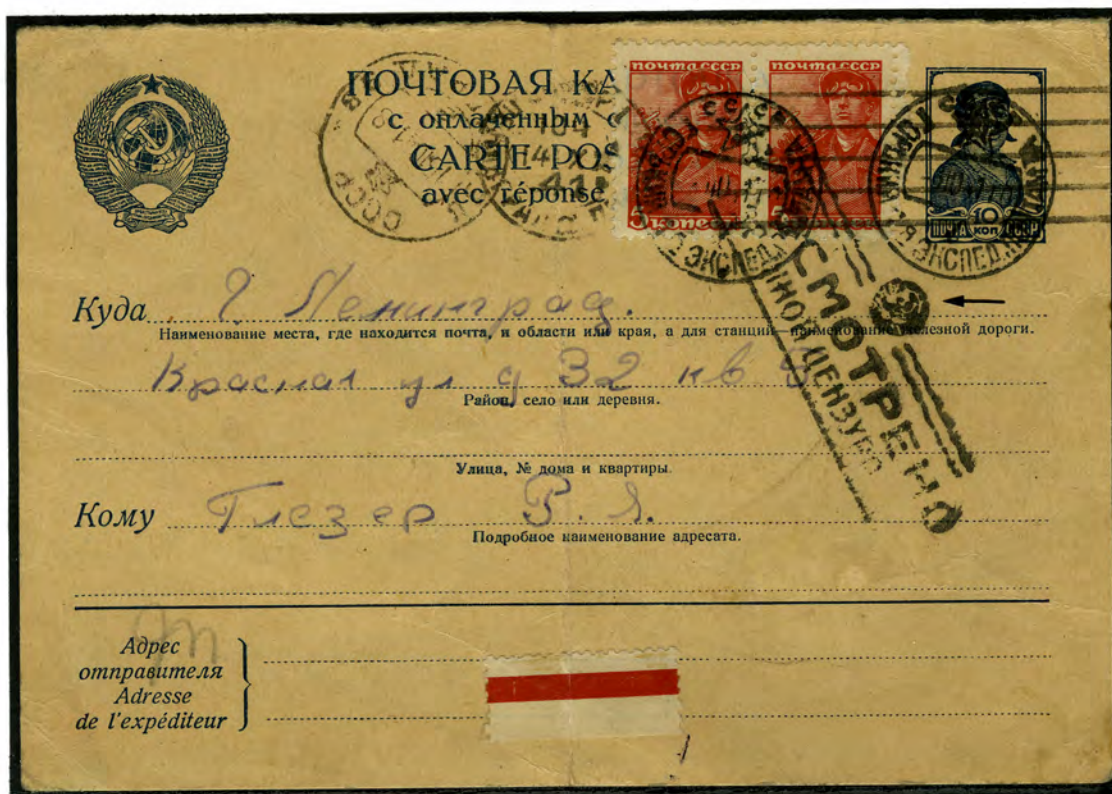 ПОЧТОВАЯ КА
с оплаченным о
CARTE PO
avec réponse
ПОЧТА СССР
ПОЧТА СССР
5 КОПЕЕК
10
КОП
ПОЧТА СССР
СССР
МОСКВА
ЭКСПЕД.
МОСКВА
ЭКСПЕД.
СМОТРЕНО
ЕННОЙ ЦЕНЗУРОЙ
Куда г. Ленинград.
Наименование места, где находится почта, и области или края, а для станций—наименование железной дороги.
Красная ул д 32 кв 8
Район, село или деревня.
Улица, № дома и квартиры.
Кому Глезер В. Я.
Подробное наименование адресата.
Адрес
отправителя
Adresse
de l'expéditeur